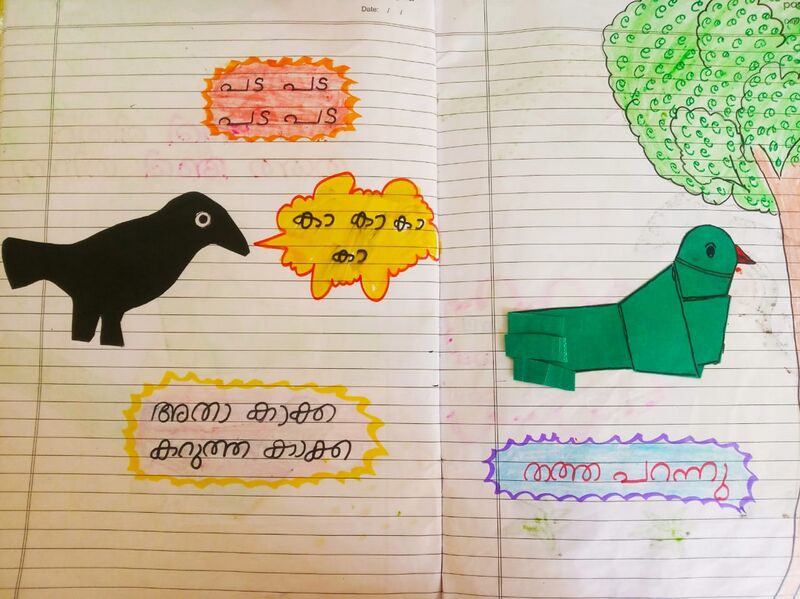 Date: / /
പട പട
പട പട
കാ കാ കാ
കാ
അതാ കാക്ക
കറുത്ത കാക്ക
തത്ത പറന്നു